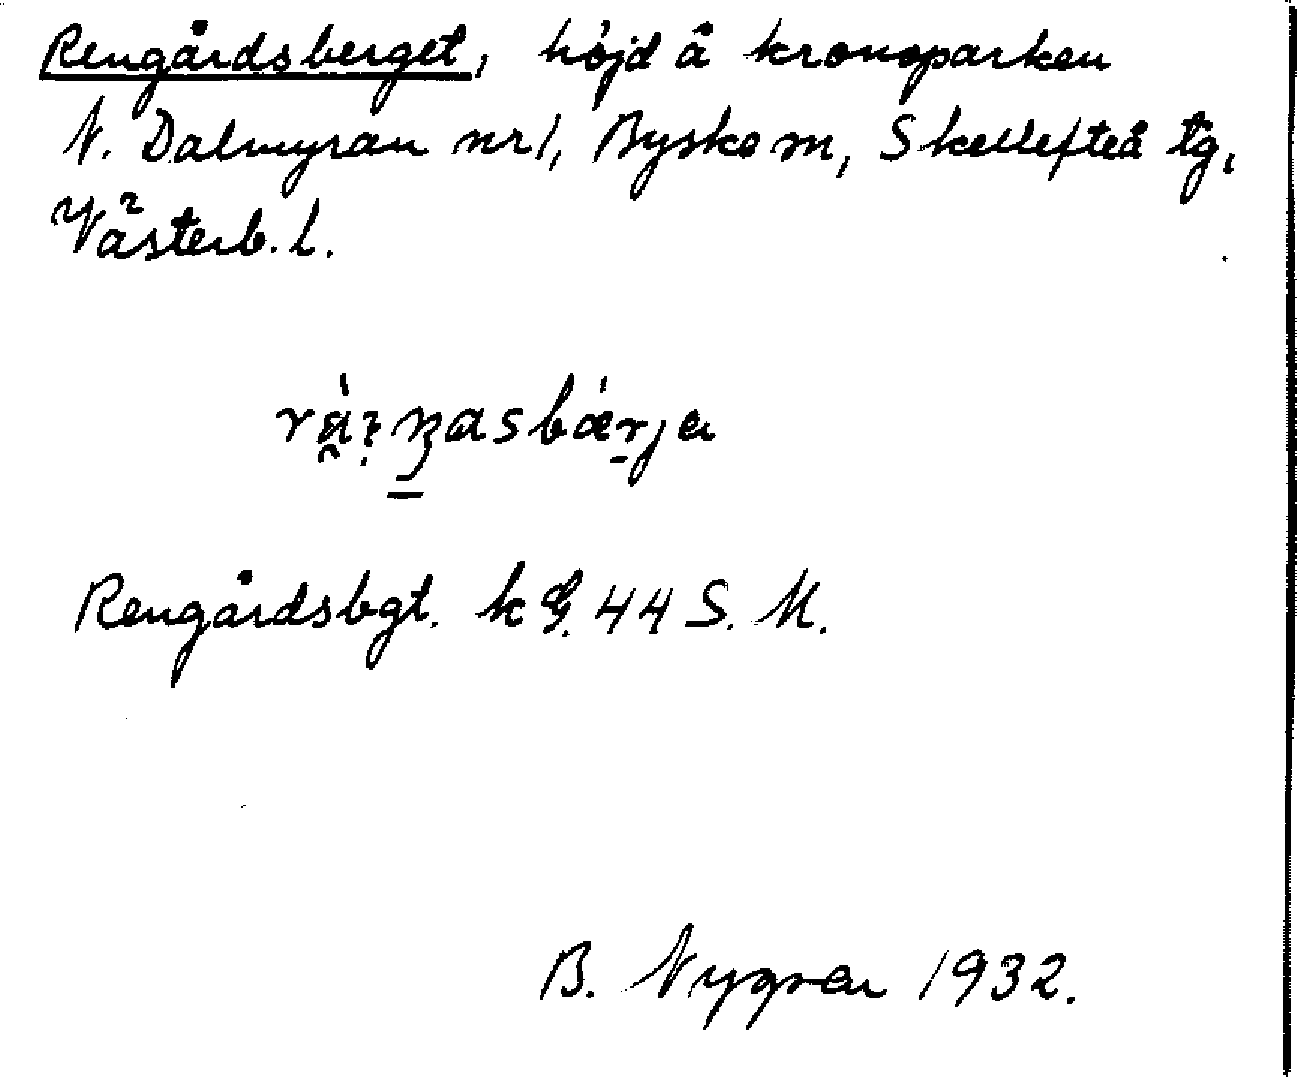 Rengårdsberget, höjd å kronoparken
N. Dalmyran nr 1, Byske sn, Skellefteå tg,
Västerb. l.
Rengårdsbgt. k G. 44 S. M.
B. Nygren 1932.